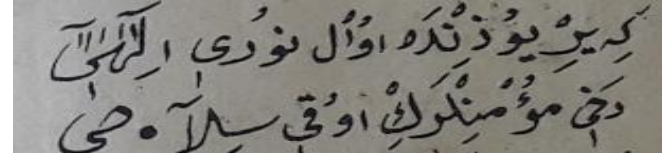 كِه يِرْ يُوزِنْدَه اوُلْ نُورِى اِلٰهِى
دَخِى مُؤْمِنْلَرِڭْ اوُقِى سِلَاحِى